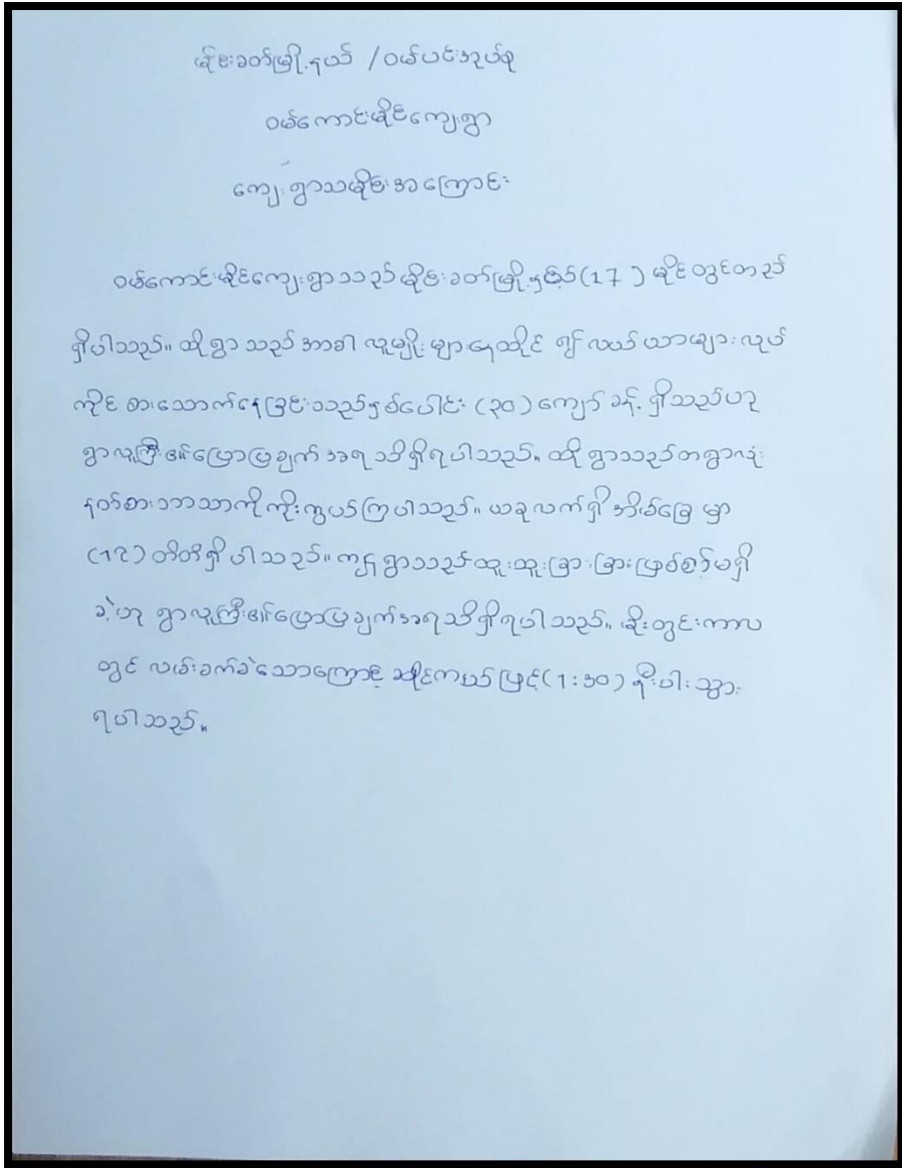 မိုင်းခတ်မြို့နယ် / ဝမ်ပင်းအုပ်စု
ဝမ်ကောင်းမိုင်ကျေးရွာ
ကျေးရွာသမိုင်းအကြောင်း
ဝမ်ကောင်းမိုင်ကျေးရွာသည် မိုင်းခတ်မြို့နှင့် (17) မိုင်တွင်တည်
ရှိပါသည်။ ထိုရွာသည် အာခါ လူမျိုးများနေထိုင် ၍ လယ်ယာများ လုပ်
ကိုင် စားသောက်နေခြင်းသည်နှစ်ပေါင်း (၃၀) ကျော် ခန့် ရှိသည်ဟု
ရွာလူကြီး၏ပြောပြချက် အရ သိရှိရပါသည်။ ထိုရွာသည်တရွာလုံး
နတ်စားဘာသာကိုကိုးကွယ်ကြပါသည်။ ယခုလက်ရှိ အိမ်ခြေ မှာ
(17) တိတိရှိပါသည်။ ဤရွာသည်ထူးထူးခြားခြားဖြစ်စဉ်မရှိ
ခဲ့ဟု ရွာလူကြီး၏ပြောပြချက်အရသိရှိရပါသည်။ မိုးတွင်းကာလ
တွင် လမ်းခက်ခဲသောကြောင့် ဆိုင်ကယ်ဖြင့် (1:30) နီးပါး သွား
ရပါသည်။